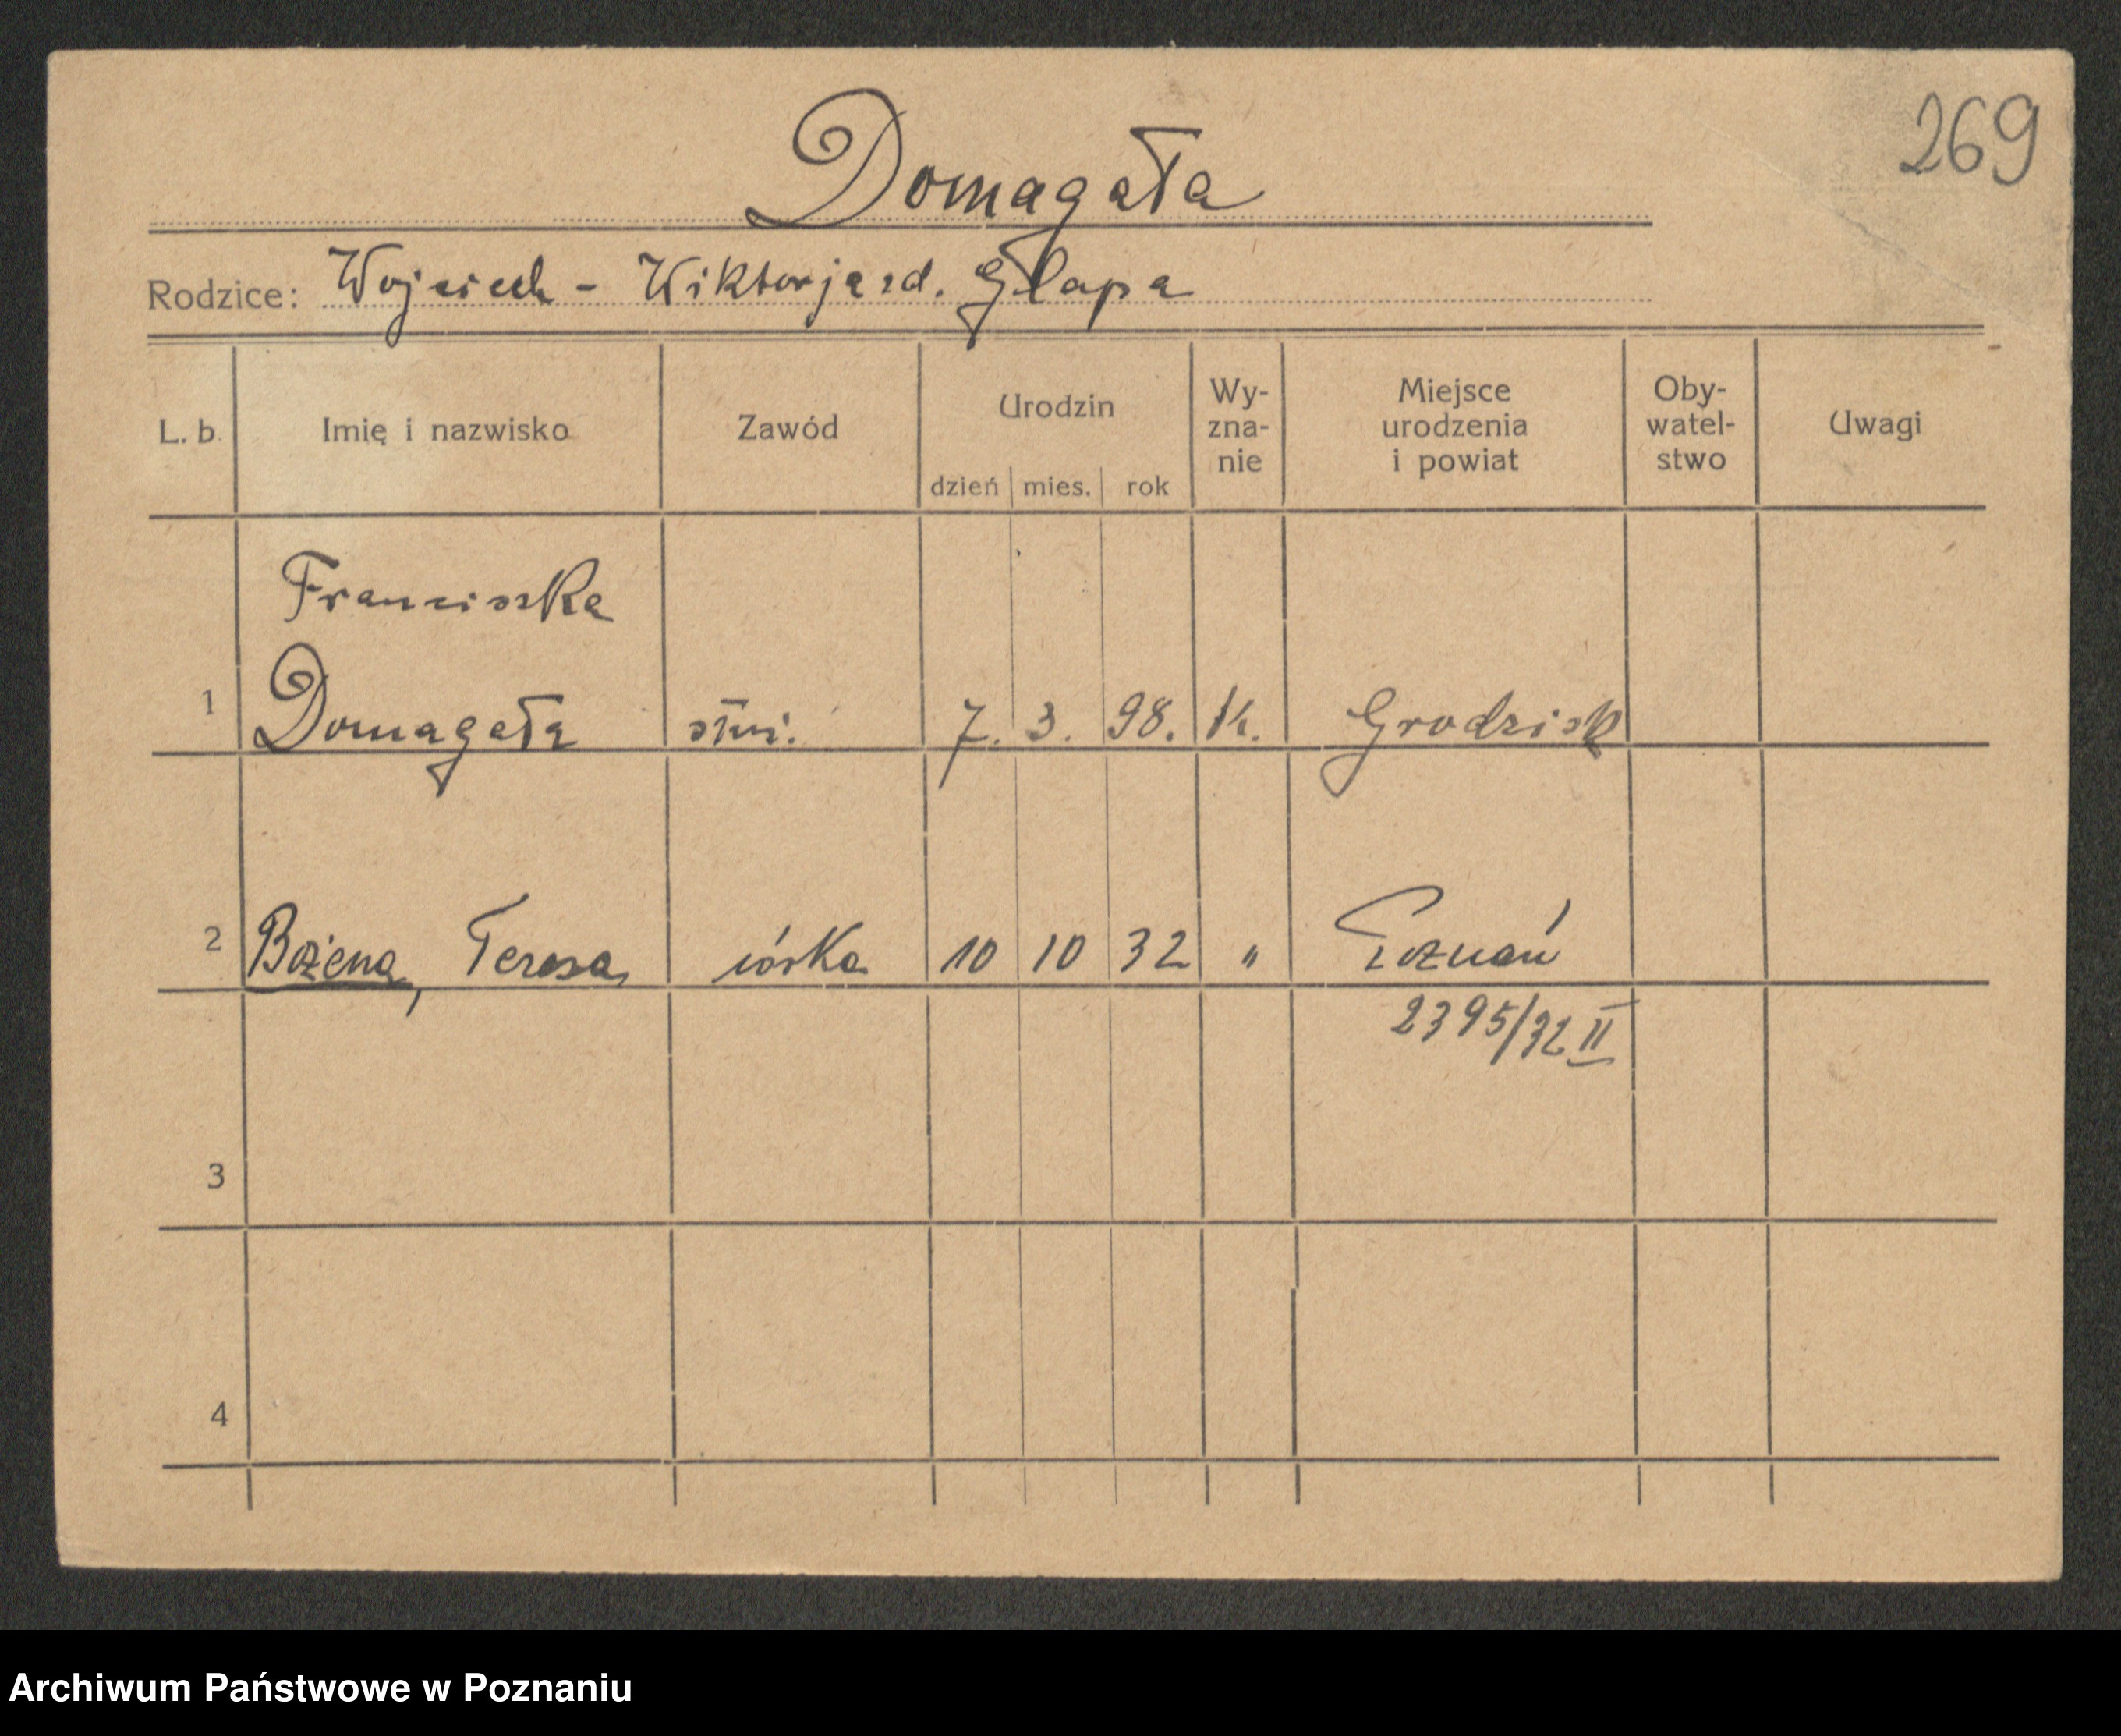 269
Domagała
Rodzice: Wojciech - Wiktorja zd. Glapa
L. b. Imię i nazwisko Zawód Urodzin Wy- Miejsce Oby- Uwagi
zna- urodzenia watel-
nie i powiat stwo
dzień mies. rok
Franciszka
1 Domagała służ. 7. 3. 98. k. Grodzisk
2 Bożena, Teresa córka 10 10 32 " Poznań
2395/32 II
3
4
Archiwum Państwowe w Poznaniu